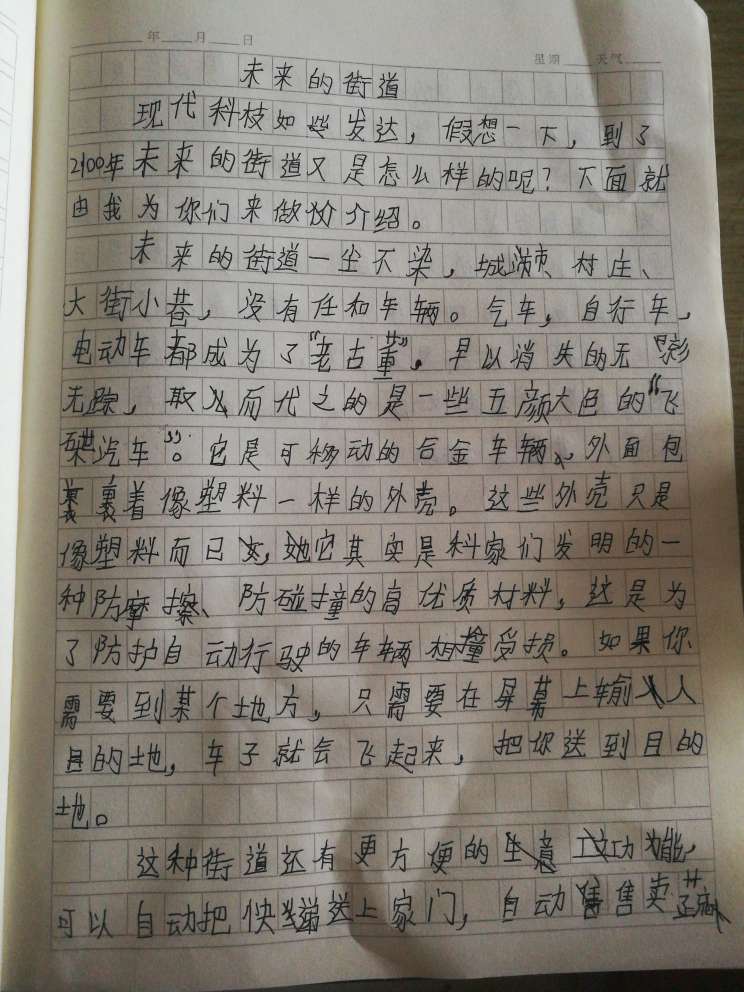 年 月 日
星期 天气
未来的街道
现代科枝如些发达，假想一下，到了
2100年未来的街道又是怎么样的呢？下面就
由我为你们来做价介绍。
未来的街道一尘不染，城市、村庄、
大街小巷，没有任和车辆。气车，自行车，
电动车都成为了“老古董”，早以消失的无影
无踪，取而代之的是一些五颜六色的“飞
汽车”。它是可移动的合金车辆、外面包
裹着像塑料一样的外壳。这些外壳只是
像塑料而已，它其实是科家们发明的一
种防摩擦、防碰撞的高优质材料，这是为
了防护自动行驶的车辆相撞受损。如果你
需要到某个地方，只需要在屏幕上输人
目的地，车子就会飞起来，把你送到目的
地。
这种街道还有更方便的功能，
可以自动把快递送上家门，自动售卖